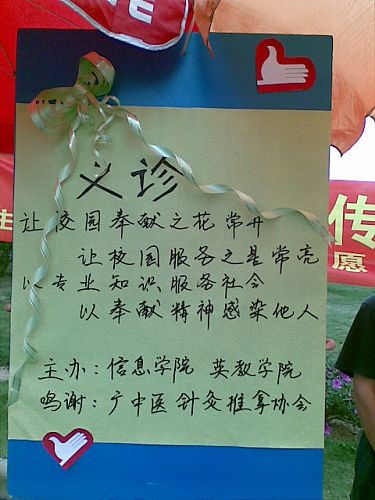 义诊
让校园奉献之花常开
让校园服务之星常亮
以专业知识服务社会
以奉献精神感染他人
主办：信息学院 英教学院
鸣谢：广中医针灸推拿协会
传
愿